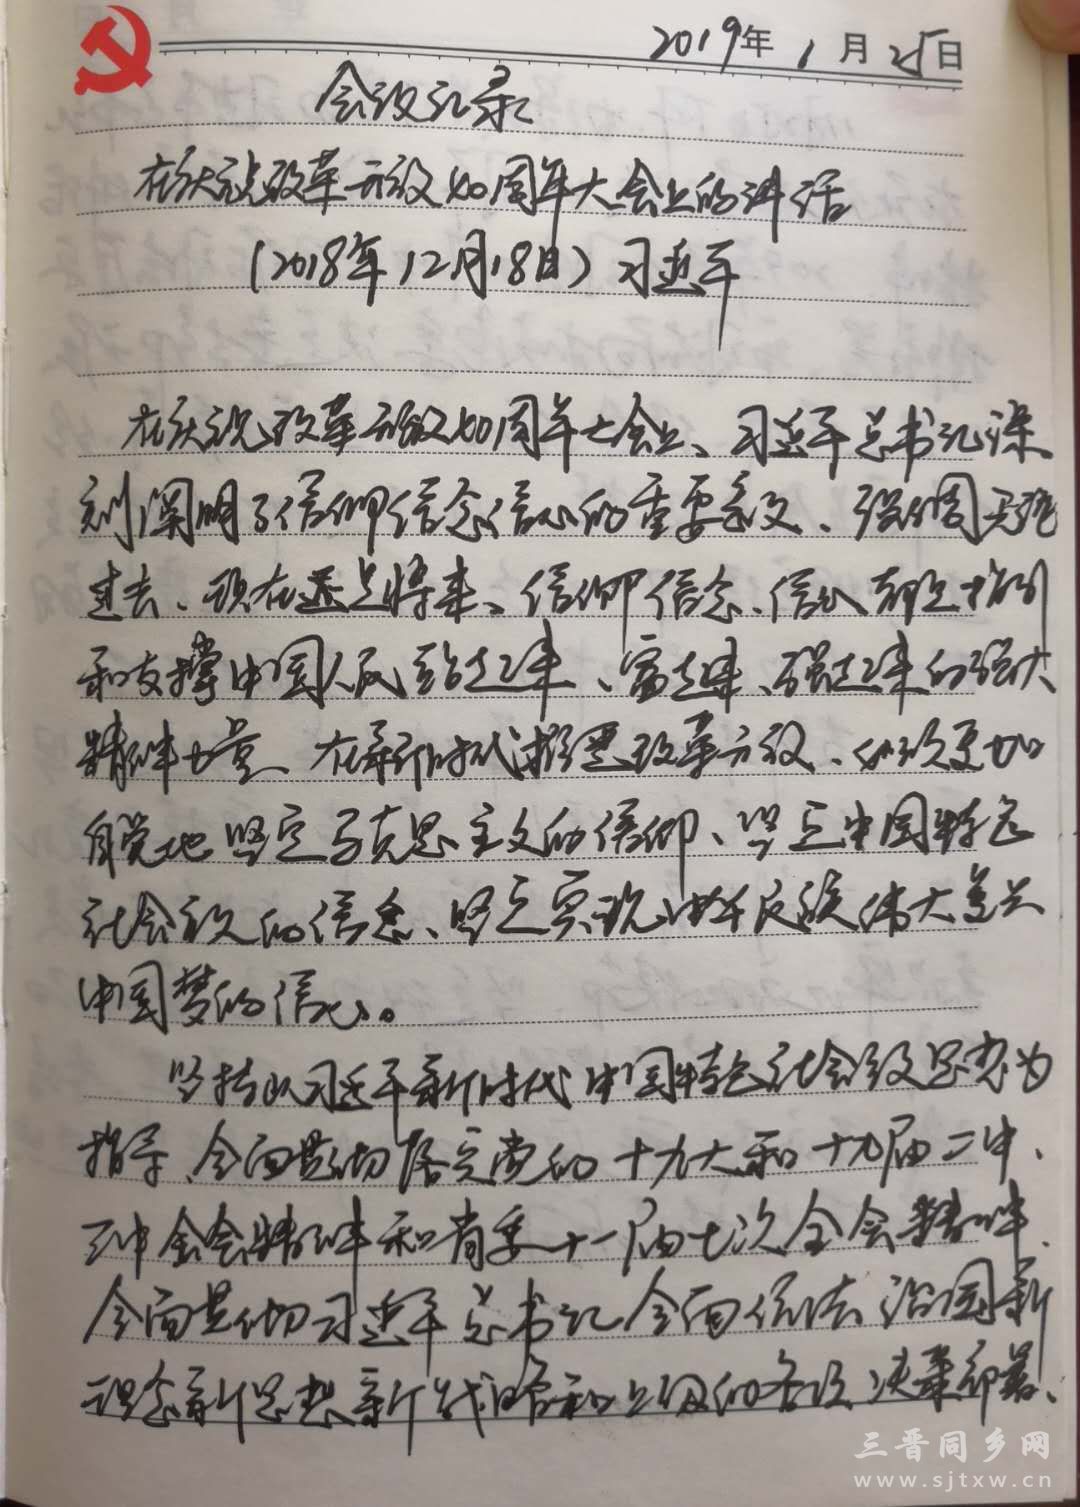 2019年 1月 25日
会议记录
在庆祝改革开放40周年大会上的讲话
(2018年12月18日) 习近平
在庆祝改革开放40周年大会上、习近平总书记深
刻阐明了信仰信念信心的重要意义、强调无论
过去、现在还是将来、信仰信念、信心都是指引
和支撑中国人民站起来、富起来、强起来的强大
精神力量、在新时代推进改革开放、必须更加
自觉地坚定马克思主义的信仰、坚定中国特色
社会主义的信念、坚定实现中华民族伟大复兴
中国梦的信心。
坚持以习近平新时代中国特色社会主义思想为
指导、全面贯彻落实党的十九大和十九届二中、
三中全会精神和省委十一届七次全会精神、
全面贯彻习近平总书记全面依法治国新
理念新思想新战略和上级的各项决策部署、
三晋同乡网
www.sjtxw.cn